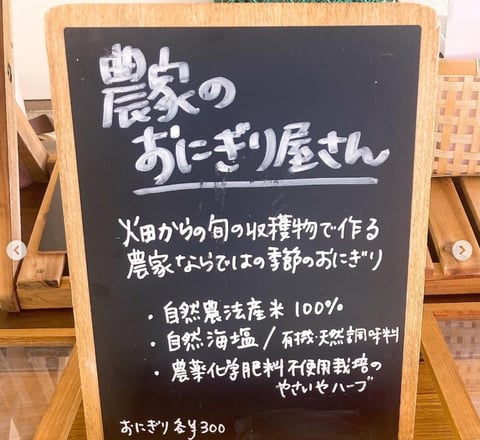 農家の
おにぎり屋さん
畑からの旬の収穫物で作る
農家ならではの季節のおにぎり
・自然農法産米 100%
・自然海塩/有機・天然調味料
・農薬化学肥料不使用栽培の
やさいやハーブ
おにぎり各¥300